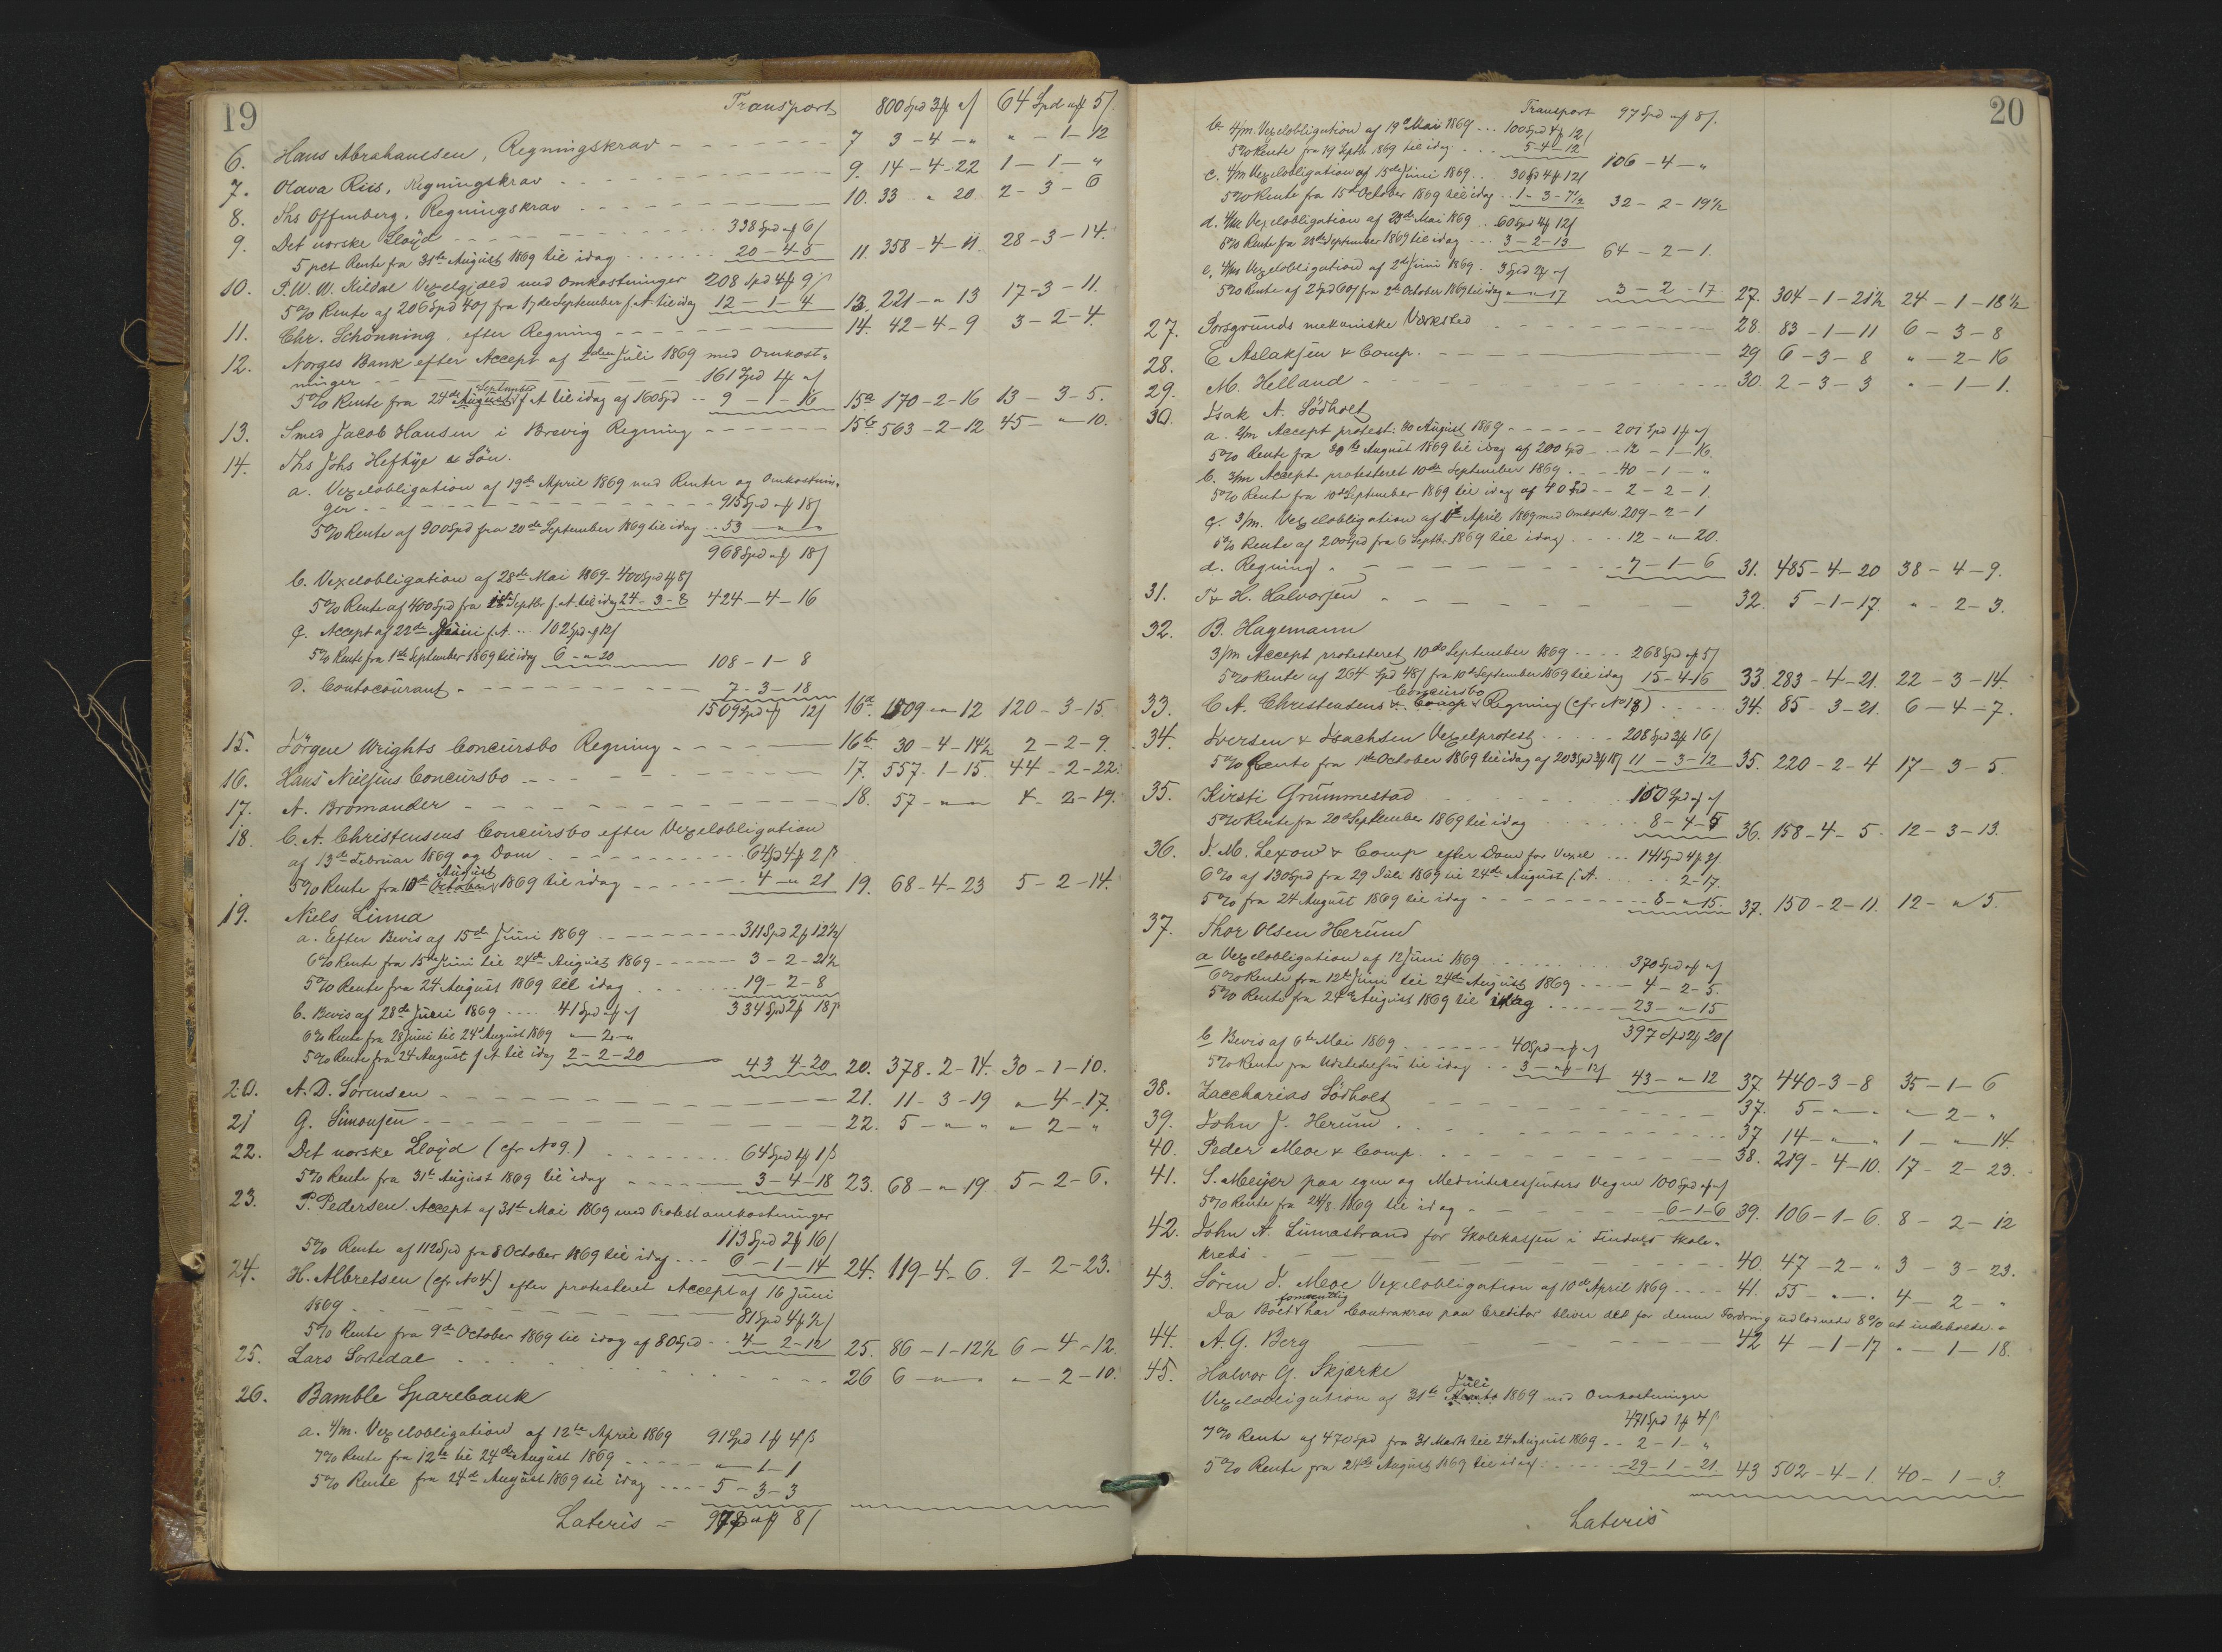 19
Transport 800 Spd 3 ₰ " ß 64 Spd " ₰ 5 ß.
6. Hans Abrahamssen, Regningskrav - - - - - - - 7 3 - 4 - " " - 1 - 12
7. Olava Riis, Regningskrav - - - - - - - 9. 14 - 4 - 22 1 - 1 - "
8. Ths Offenberg, Regningskrav - - - - - - - 10. 33 " 20 2 - 3 - 6
9. Det norske Lloyd - - - - - - - 338 Spd " ₰ 6 ß
5 pct. Rente fra 31te August 1869 til idag - - - - - 20 - 4 - 5 11. 358 - 4 - 11. 28 - 3 - 14.
10. P. W. W. Kildal Vexelgjæld med Omkostninger 208 Spd 4 ₰ 9 ß
5 % Rente af 206 Spd 40 ß fra 17de September f. A. til idag 12 - 1 - 4 13. 221 - " 13 17 - 3 - 11.
11. Chr. Schönning, efter Regning - - - - - - - 14. 42 - 4 - 9 3 - 2 - 4.
12. Norges Bank efter Accept af 2den Juli 1869 med Omkost-
ninger - - - - - - - 161 Spd 1 ₰ " ß
September
5 % Rente fra 24de August f. A. til idag af 160 Spd - - 9 - 1 - 16 15a 170 - 2 - 16 13 - 3 - 5.
13. Smed Jacob Hansen i Brevig Regning - - - - - - - 15b 563 - 2 - 12 45 - " - 10.
14. Ths Johs Heftye & Sön.
a. Vexelobligation af 19de April 1869 med Renter og Omkostnin-
ger - - - - - - - 915 Spd " ₰ 18 ß
5 % Rente af 900 Spd fra 20de September 1869 til idag - - 53 - " - "
968 Spd " ₰ 18 ß
b. Vexelobligation af 28de Mai 1869 - 400 Spd 1 ₰ 8 ß
5 % Rente af 400 Spd fra 18de Septbr f. A. til idag 24 - 3 - 8 424 - 4 - 16
c. Accept af 22de Juni f. A. - - 102 Spd " ₰ 12 ß
5 % Rente fra 1ste September 1869 til idag 6 - " - 20 108 - 1 - 8
d. Contocourant - - - - - - - 7 - 3 - 18
1509 Spd " ₰ 12 ß 16a. 1509 - " - 12 120 - 3 - 15.
15. Jörgen Wrights Concursbo Regning - - - - - - - 16b. 30 - 4 - 14½ 2 - 2 - 9.
16. Hans Nielsens Concursbo - - - - - - - 17. 557 - 1 - 15. 44 - 2 - 22.
17. A. Bromander - - - - - - - 18. 57 - " - " 4 - 2 - 19.
18. C. A. Christensens Concursbo efter Vexelobligation
af 13de Februar 1869 og Dom - - - - - - - 64 Spd 4 ₰ 2 ß
August
5 % Rente fra 10de October 1869 til idag - - - - - 4 - " 21 19. 68 - 4 - 23 5 - 2 - 14.
19. Niels Linna
a. Efter Bevis af 15de Juni 1869 - - - - - - - 311 Spd 2 ₰ 12½ ß
6 % Rente fra 15de Juni til 24de August 1869 - - - - - 3 - 2 - 21½
5 % Rente fra 24 August 1869 til idag - - - - - 19 - 2 - 8
334 Spd 2 ₰ 18 ß
b. Bevis af 28de Juni 1869 - - - 41 Spd " ₰ " ß
6 % Rente fra 28 Juni til 24de August 1869 " - 2 - "
5 % Rente fra 24 August f. A. til idag 2 - 2 - 20 43 4 - 20 20. 378 - 2 - 14. 30 - 1 - 10.
20. A. D. Sörensen - - - - - - - 21. 11 - 3 - 19 " - 4 - 17.
21 G. Simonsen - - - - - - - 22. 5 - " - " " - 2 - "
22. Det norske Lloyd (cfr No 9.) - - - - - - - 64 Spd 1 ₰ 1 ß
5 % Rente fra 31te August 1869 til idag - - - - - 3 - 4 - 18 23. 68 - " - 19 5 - 2 - 6.
23. P. Pedersen. Accept af 31te Mai 1869 med Protestomkostninger
113 Spd 2 ₰ 16 ß
5 % Rente af 112 Spd fra 8 October 1869 til idag - - - 6 - 1 - 14 24. 119 - 4 - 6. 9 - 2 - 23.
24. H. Albretsen (cfr No 4.) efter protesteret Accept af 16 Juni
1869 - - - - - - - 81 Spd 4 ₰ ½ ß
5 % Rente fra 9de October 1869 til idag af 80 Spd - - 4 - 2 - 12 25. 86 - 1 - 12½ 6 - 4 - 12.
25. Lars Sortedal - - - - - - - 26 6 - " - " " - 2 - 10.
26. Bamble Sparebank
a. 4/m. Vexelobligation af 12te April 1869 91 Spd 1 ₰ 4 ß
7 % Rente fra 12te til 24de August 1869 - - - - - " - 1 - 1
5 % Rente fra 24de August 1869 til idag - - - - 5 - 3 - 3
Lateris = 97 Spd " ₰ 8 ß
20
Transport 97 Spd " ₰ 8 ß.
b. 4/m. Vexelobligation af 19de Mai 1869 - - - 100 Spd 4 ₰ 12 ß
5 % Rente fra 19 Septbr. 1869 til idag - - - 5 - 4 - 12 106 - 4 - "
c. 4/m Vexelobligation af 15de Juni 1869 - - 30 Spd 4 ₰ 12 ß
5 % Rente fra 15de October 1869 til idag - - 1 - 3 - 7½ 32 - 2 - 19½
d. 4/m Vexelobligation af 23de Mai 1869 - - 60 Spd 4 ₰ 12 ß
5 % Rente fra 23de September 1869 til idag - - - 3 - 2 - 13 64 - 2 - 1.
e. 4/m Vexelobligation af 2de Juni 1869 - 3 Spd 2 ₰ " ß
5 % Rente af 2 Spd 60 ß fra 2de October 1869 til idag " - " 17 3 - 2 - 17. 27. 304 - 1 - 21½ 24 - 1 - 18½
27. Porsgrunds mekaniske Værksted - - - - - - - 28. 83 - 1 - 11 6 - 3 - 8
28. E Aslaksen & Comp. - - - - - - - 29 6 - 3 - 8 " - 2 - 16
29. M. Helland - - - - - - - 30. 2 - 3 - 3 " - 1 - 1.
30. Isak A. Södholt
a. 2/m Accept protest. 30 August 1869 - - - - - 201 Spd 1 ₰ " ß
5 % Rente fra 30te August 1869 til idag af 200 Spd - - 12 - 1 - 16.
b. 3/m Accept protesteret 10de September 1869 - - - 40 - 1 - "
5 % Rente fra 10de September 1869 til idag af 40 Spd - - 2 - 2 - 1.
c. 3/m. Vexelobligation af 1ste April 1869 med Omkostn. 209 - 2 - 1
5 % Rente af 200 Spd fra 6 Septbr. 1869 til idag - - - - 12 - " 20.
d. Regning - - - - - - - 7 - 1 - 6 31. 485 - 4 - 20 38 - 4 - 9.
31. T & H. Halvorsen - - - - - - - 32. 5 - 1 - 17. " - 2 - 3.
32. B. Hagemann
3/m Accept protesteret 10de September 1869 - - - - 268 Spd " ₰ 5 ß
5 % Rente af 264 Spd 48 ß fra 10de September 1869 til idag 15 - 4 - 16 33 283 - 4 - 21. 22 - 3 - 14.
Concursbo
33. C. A. Christensens & Comp s Regning (cfr No 18) - - - - 34. 85 - 3 - 21. 6 - 4 - 7.
34. Iversen & Isachsen Vexelprotest - - - - - 208 Spd 3 ₰ 16 ß
5 % Rente fra 1ste October 1869 til idag af 203 Spd 3 ₰ 18 ß 11 - 3 - 12 35. 220 - 2 - 4 17 - 3 - 5.
35. Kirsti Grummestad - - - - - - - 150 Spd " ₰ " ß
5 % Rente fra 20de September 1869 til idag - - - - - 8 - 4 - 5 36. 158 - 4 - 5. 12 - 3 - 13.
36. J. M. Lexow & Comp efter Dom for Vexel - - - 141 Spd 4 ₰ 3 ß.
6 % af 130 Spd fra 29 Juli 1869 til 24de August f. A. - - - - 2 - 17.
5 % fra 24 August 1869 til idag - - - - - - - 8 - " 15. 37. 150 - 2 - 11. 12 - " 5.
37. Thor Olsen Herum
a Vexelobligation af 12 Juni 1869 - - - - - - - 370 Spd " ₰ " ß
6 % Rente fra 12te Juni til 24de August 1869 - - - - 4 - 2 - 5.
5 % Rente fra 24de August 1869 til idag - - - - - 23 - " 15
397 Spd 2 ₰ 20 ß
b Bevis af 6te Mai 1869 - - - - - - - 40 Spd " ₰ " ß
5 % Rente fra Udstedelsen til idag - - 3 - " ₰ - 12 ß 43 - " 12 37. 440 - 3 - 8 35 - 1 - 6
38. Zaccharias Södholt - - - - - - - 37. 5 - " - " " - 2 - "
39. John J. Herum - - - - - - - 37 14 - " - " 1 - " - 14.
40. Peder Meoe & Comp. - - - - - - - 38. 219 - 4 - 10. 17 - 2 - 23.
41. S. Meijer paa egne og Medinteressenters Vegne 100 Spd " ₰ " ß
5 % Rente fra 24/8. 1869 til idag - - - - - - - 6 - 1 - 6 39. 106 - 1 - 6. 8 - 2 - 12
42. John A. Linnastrand for Skolekassen i Findals Skole-
kreds - - - - - - - 40. 47 - 2 - " 3 - 3 - 23.
43. Sören J. Meoe Vexelobligation af 10de April 1869 - - - - 41. 55 - " - " 4 - 2 - "
formentlig
Da Boet har Contrakrav paa Creditor bliver det for denne Fordring udlodnede 8 % at indeholde. -
44. A. G. Berg - - - - - - - 42 4 - 1 - 17 " - 1 - 18.
45. Halvor G. Skjærke
Juli
Vexelobligation af 31te Marts 1869 med Omkostninger
471 Spd 1 ₰ 4 ß
7 % Rente af 470 Spd fra 31 Marts til 24 August 1869 - - 2 - 1 - "
5 % Rente fra 24de August 1869 til idag - - - - - 29 - 1 - 21. 43 502 - 4 - 1. 40 - 1 - 3.
Lateris